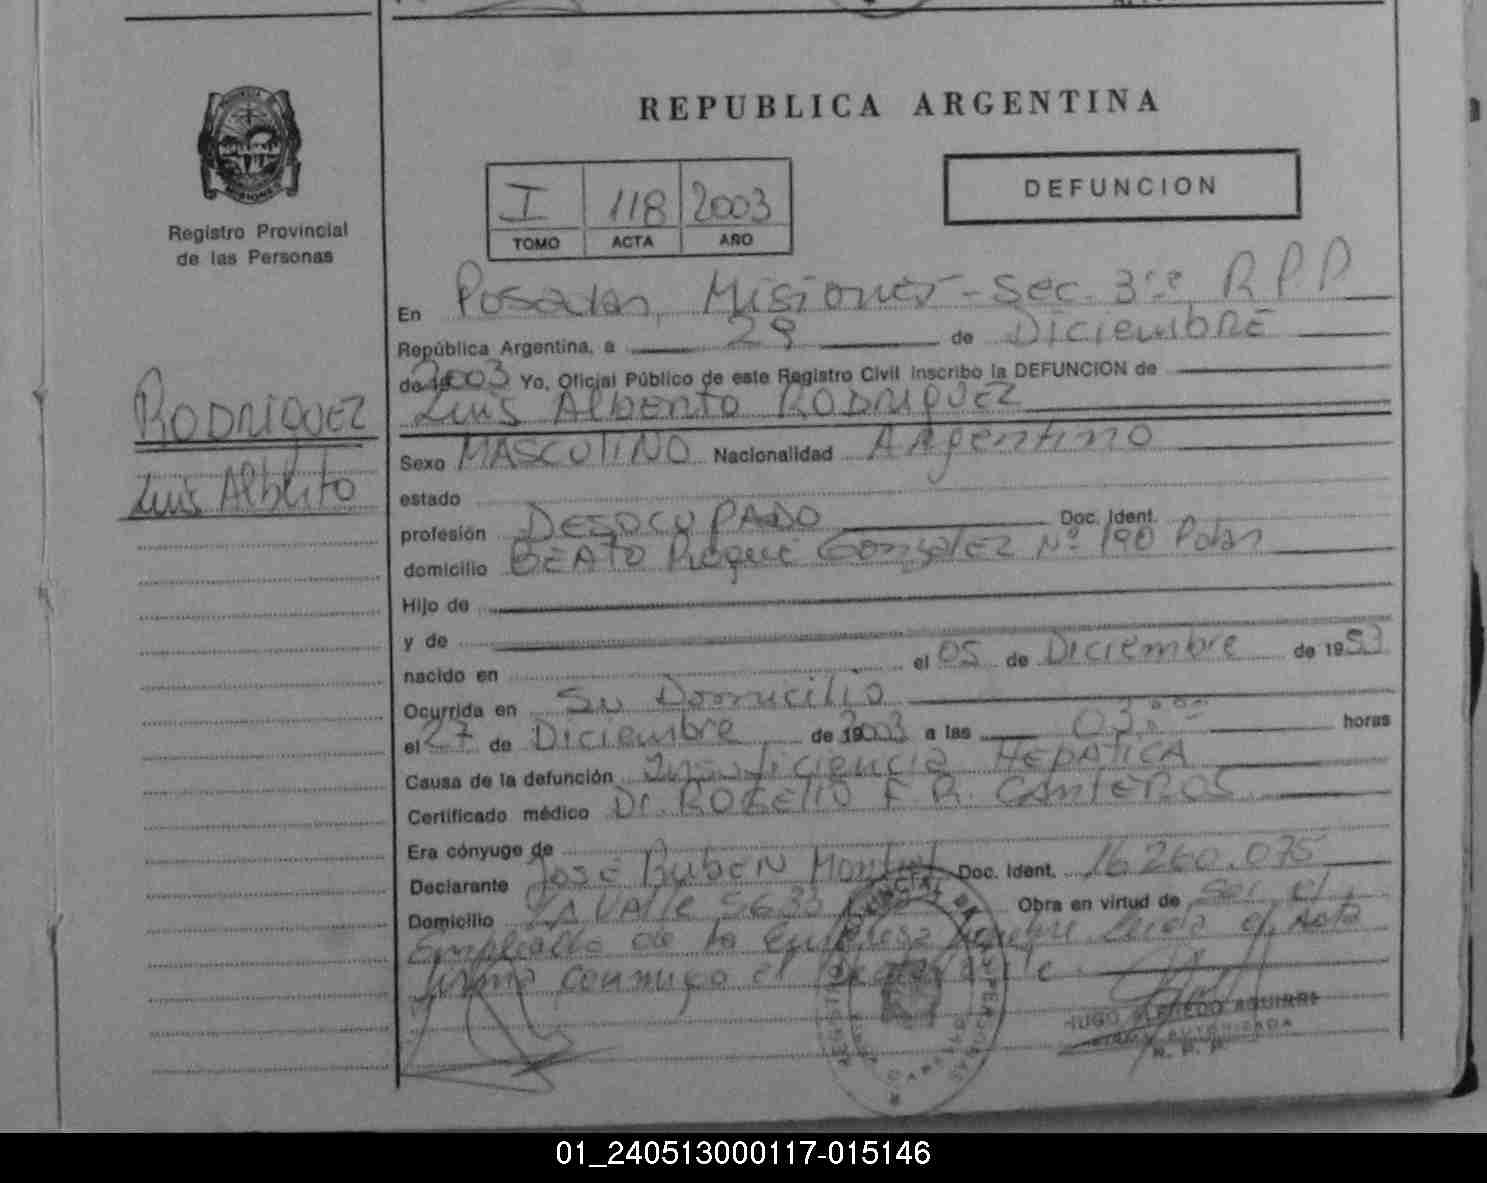 REPUBLICA ARGENTINA
I 118 2003
TOMO ACTA AÑO
DEFUNCION
Registro Provincial
de las Personas
RODRIGUEZ
Luis Alberto
En Posadas, Misiones - Sec. 3ra. R P P
República Argentina, a 29 de DiciembRE
de 2003 Yo, Oficial Público de este Registro Civil inscribo la DEFUNCION de
Luis Alberto RODRIGUEZ
Sexo MASCULINO Nacionalidad Argentino
estado
profesión DESOCUPADO Doc. Ident.
domicilio BEATO Roque Gonzalez Nº 190 Pdas
Hijo de
y de
nacido en el 05 de Diciembre de 1953
Ocurrida en Su Domicilio
el 27 de Diciembre de 2003 a las 03:00 horas
Causa de la defunción Insuficiencia HEPATICA
Certificado médico Dr. ROGELIO F. R. CANTEROS
Era cónyuge de
Declarante José RubEN Doc. Ident. 16.260.075
Domicilio La Valle 5633 Obra en virtud de Ser el
Empleado de la Empresa Leida el Acta
firma conmigo el
HUGO ALFREDO AGUIRRE
FIRMA AUTORIZADA
R. P. P.
01_240513000117-015146